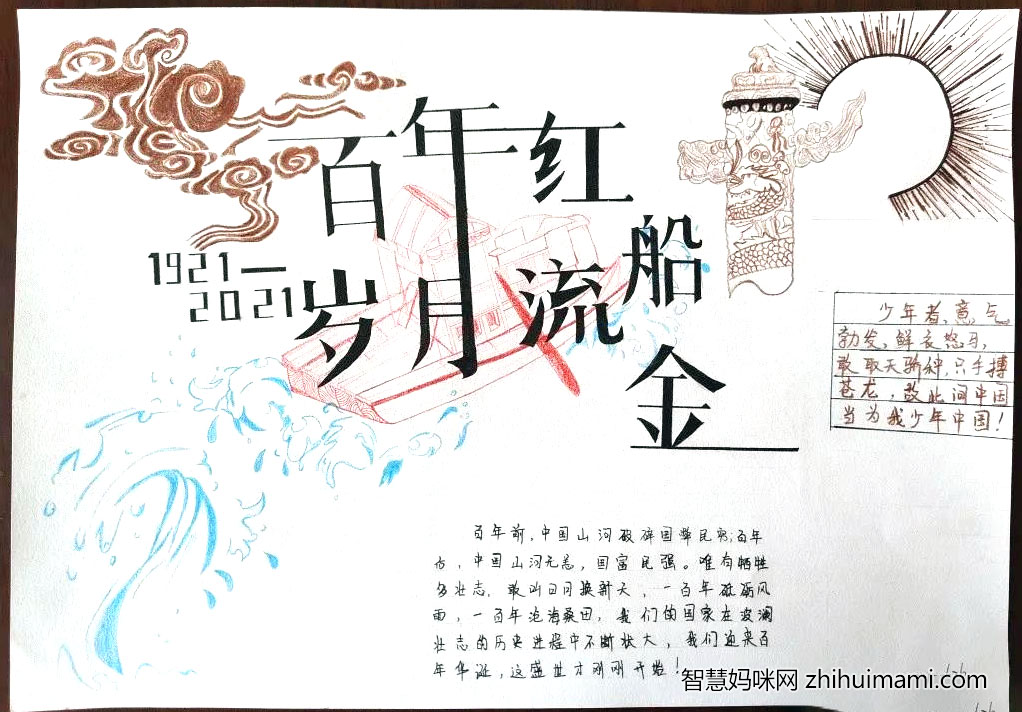 百年红船
岁月流金
1921—
2021
少年者,意气
勃发,鲜衣怒马,
敢取天骄种,只手搏
苍龙,改此间中国
当为我少年中国!
百年前,中国山河破碎国弊民穷;百年
后,中国山河无恙,国富民强。唯有牺牲
多壮志,敢叫日月换新天,一百年砥砺风
雨,一百年沧海桑田,我们的国家在波澜
壮志的历史进程中不断壮大,我们迎来百
年华诞,这盛世才刚刚开始!
智慧妈咪网 zhihuimami.com